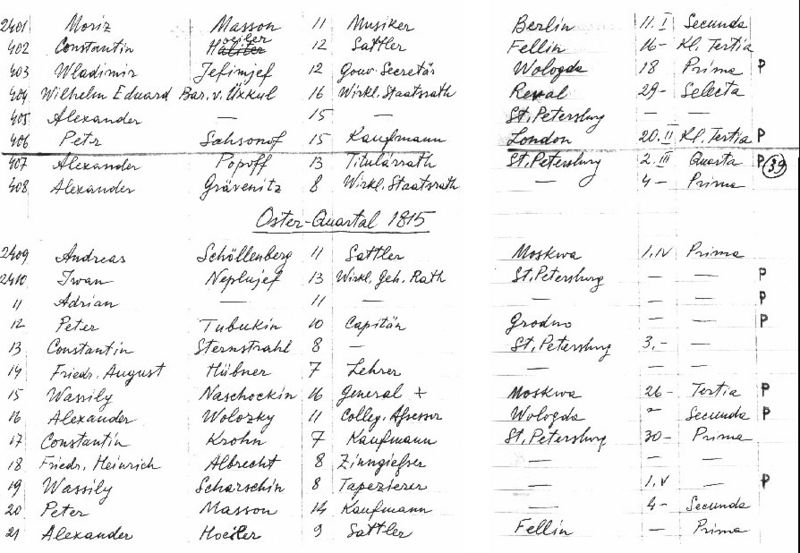 2401 Moriz Masson 11 Musiker Berlin 11. I Secunda
402 Constantin Hoeiler 12 Sattler Fellin 16 - Kl. Tertia
403 Wladimir Jefimjef 12 Gouv. Secretär Wologda 18 Prima P
404 Wilhelm Eduard Bar. v. Üxkul 16 Wirkl. Staatsrath Reval 29 - Selecta
405 Alexander — 15 — St. Petersburg — —
406 Peter Sahsonof 15 Kaufmann London 20. II Kl. Tertia P
407 Alexander Popoff 13 Titulärrath St. Petersburg 2. III Quarta P 39
408 Alexander Grävenitz 8 Wirkl. Staatsrath — 4 - Prima
Oster-Quartal 1815
2409 Andreas Schöllenberg 11 Sattler Moskwa 1. IV Prima
2410 Iwan Neplujef 13 Wirkl. Geh. Rath St. Petersburg — — P
11 Adrian — 11 — — — — P
12 Peter Tubukin 10 Capitän Grodno — — P
13 Constantin Sternstrahl 8 — St. Petersburg 3. - —
14 Friedr. August Hübner 7 Lehrer — — —
15 Wassily Naschockin 16 General + Moskwa 26 - Tertia P
16 Alexander Wolozky 11 Colleg. Assessor Wologda " Secunda P
17 Constantin Krohn 7 Kaufmann St. Petersburg 30 - Prima
18 Friedr. Heinrich Albrecht 8 Zinngießer — — —
19 Wassily Scharschin 8 Tapezierer — 1. V — P
20 Peter Masson 14 Kaufmann — 4 - Secunda
21 Alexander Hoeiler 9 Sattler Fellin — Prima